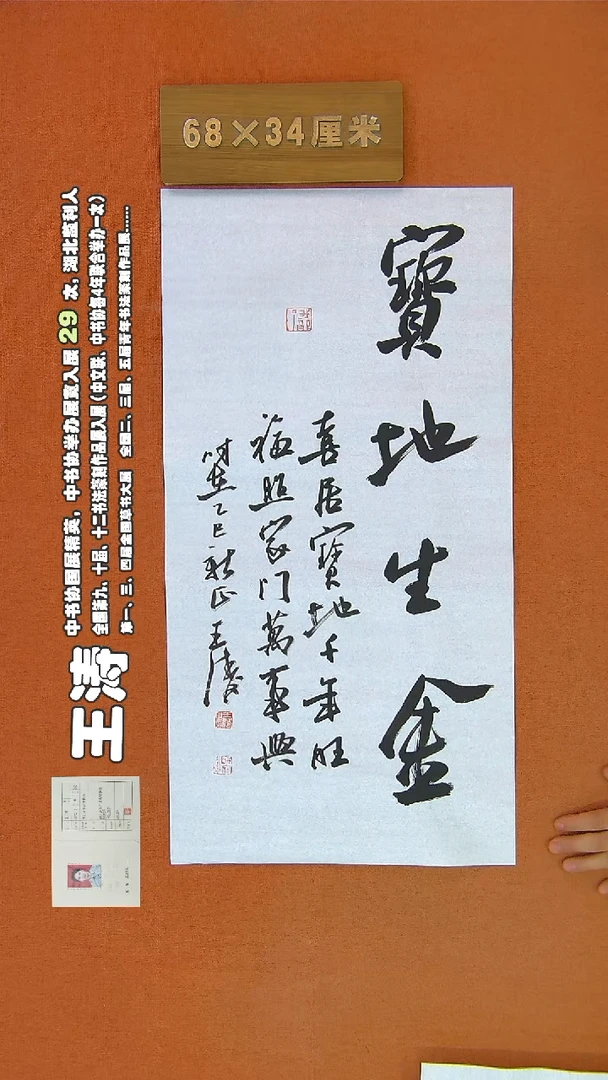 68×34厘米
寶地生金
喜居寶地千年旺
福照家门萬事興
时在乙巳新正王涛
王涛
中书协国展精英，中书协举办展赛入展29次，湖北监利人
全国第九、十届、十二书法篆刻作品展入展（中文联、中书协每4年联合举办一次）
第一、三、四届全国草书大展 全国二、三届、五届青年书法篆刻作品展......